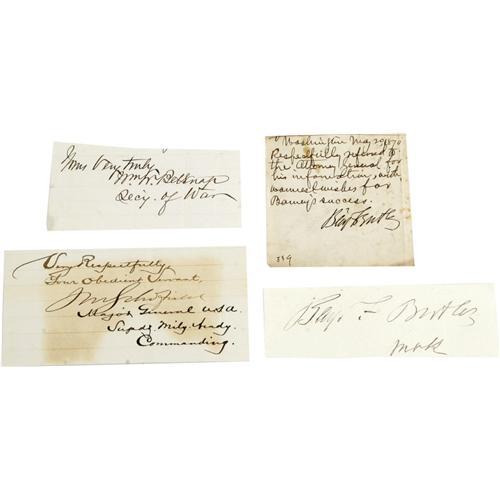 Yours Very truly
Wm W. Belknap
Secy. of War
Washington May 29 1870
Respectfully referred to
the Attorney General for
his information, with
warmest wishes for
Barney's success.
Benj F Butler
339
Very Respectfully,
Your Obedient Servant,
J M Schofield
Major General U.S.A.
Supdt. Mily. Acady.
Commanding.
Benj. F Butler
Mass